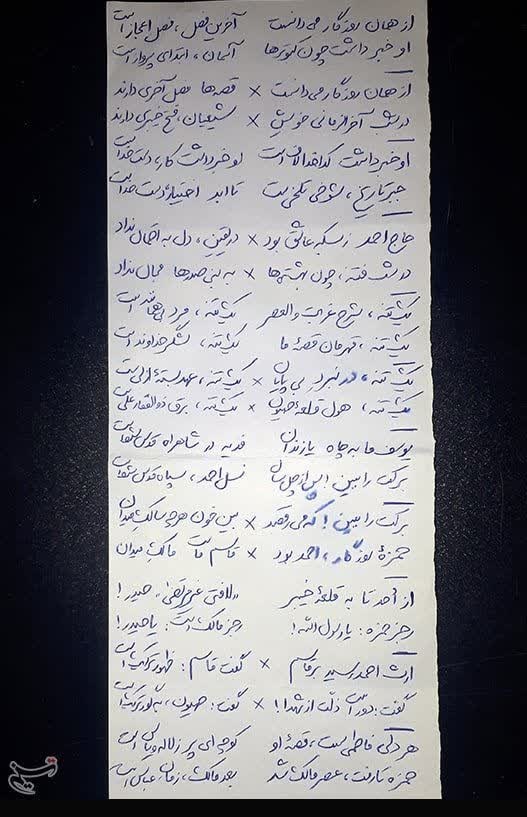 از همان روزگار می‌دانست آخرین فصل، فصل اعجاز است
او خبر داشت چون کبوترها آسمان، ابتدای پرواز است
از همان روزگار می‌دانست × قصه‌ها فصل آخری دارند
در شب آخرالزمانی خویش × شیعیان، فتح خیبری دارند
او خبر داشت کدخدا لات است او خبر داشت کار، دست خداست
جبر تاریخ، شوخی تلخی‌ست تا ابد اختیار دست خداست
حاج احمد ز بسکه عاشق بود × در یقین، دل به احتمال نداد
در شب فتنه، چون بهشتی‌ها × به بنی‌صدرها مجال نداد
یک‌تنه، شرح غربت والعصر یک‌تنه، مرد بی‌همانند است
یک‌تنه، قهرمان قصهٔ ما یک‌تنه، لشگر خداوند است
یک‌تنه، در نبرد بی‌پایان × یک‌تنه، عهد بستهٔ ازلی است
یک‌تنه، هول قلعهٔ صهیون × یک‌تنه، برق ذوالفقار علی
یوسف ما به چاه یا زندان فدیه در شاهراه قدس
برکت را ببین پس از چل سال نسل احمد، سپاه قدس
برکت را ببین! که می‌رقصد × بین خون هرچه سالک میدان
حمزهٔ روزگار، احمد بود × قاسم ماست مالک میدان
از اُحد تا به قلعهٔ خیبر «لافتی غیر مرتضی»، حیدر!
رجز حمزه: یا رسول الله! رجز مالک است: یا حیدر!
ارث احمد رسید بر قاسم × گفت قاسم: ظهور نزدیک است
گفت: دور است ذلت از شهدا! × گفت: صهیون، به گور نزدیک است
هر دلی فاطمی‌ست، قصهٔ او کوچه‌ای پر ز لاله و یاس است
حمزه تا رفت، عصر مالک شد بعد مالک، زمان عباس است
تسنیم